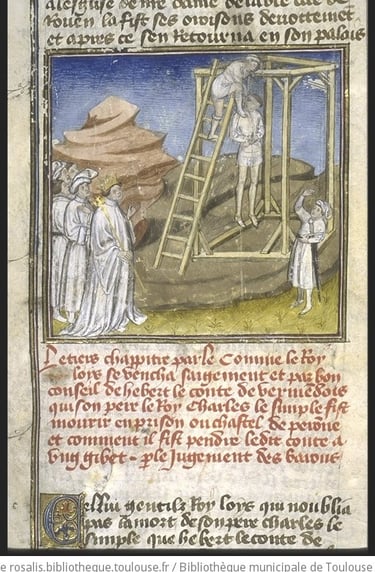 de rouen la fist ses oroisons deuottement
et apres ce sen retourna en son palais
Le tiers chappitre parle Comme le Roy
loys se vencha sagement et par bon
conseil de hebert le conte de vermēdois
qui son pere le Roy Charles le simple fist
mourir en prison ou chastel de perōne
et comment il fist pendre ledit conte a
vng gibet - p le jugement des barons
Cellui gentilz Roy loys qui noublia
pas la mort de son pere charles le
simple que hebert le conte de
e rosalis.bibliotheque.toulouse.fr / Bibliothèque municipale de Toulouse